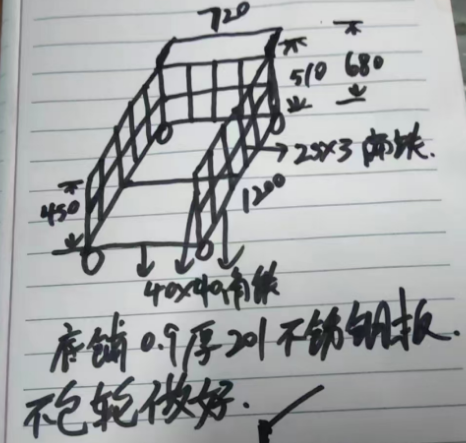 720
510 680
25×3 扁铁.
450
1200
40×40角铁
底铺0.9厚201不锈钢板.
不包轮做好.